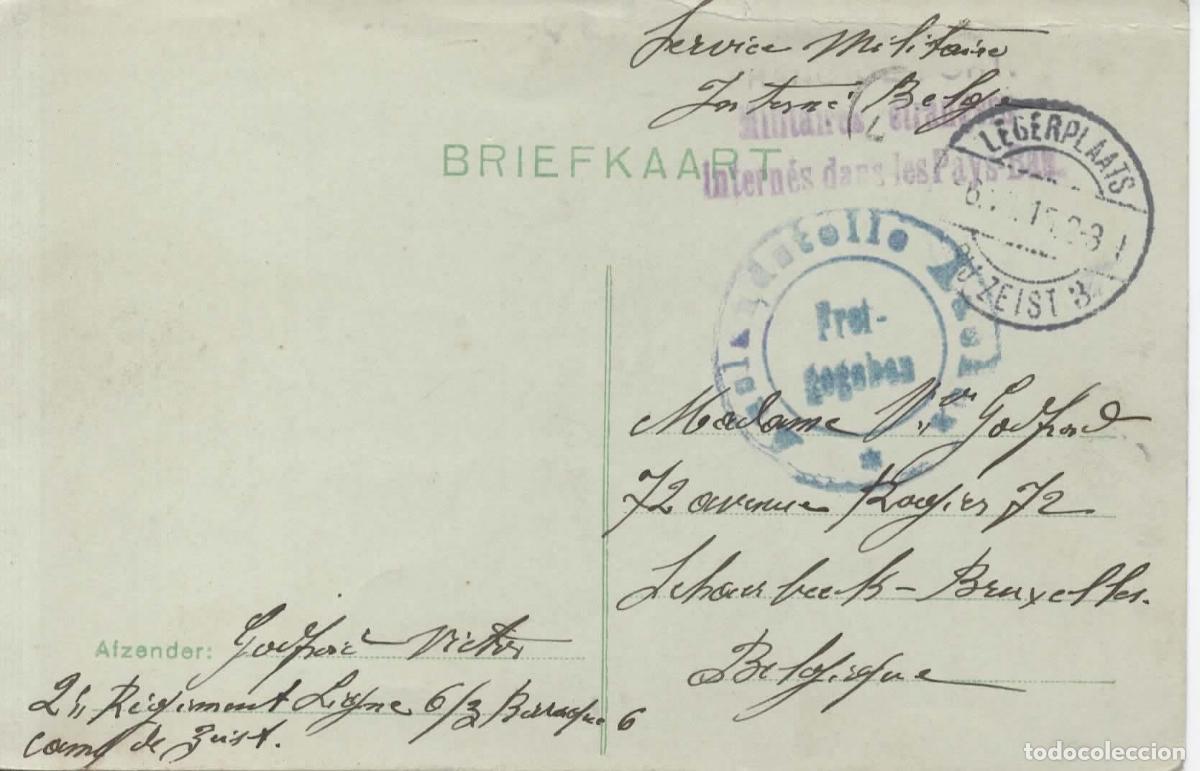 Service Militaire
Interné Belge
Militaires étrangers
internés dans les Pays-Bas.
BRIEFKAART
LEGERPLAATS
BIJ ZEIST 3
Frei-
gegeben
Madame Vve Godfroid
72 avenue Rogier 72
Schaerbeek-Bruxelles.
Belgique
Afzender: Godfroid Victor
2e Régiment Ligne 6/3 Barraque 6
camp de Zeist.
todocoleccion